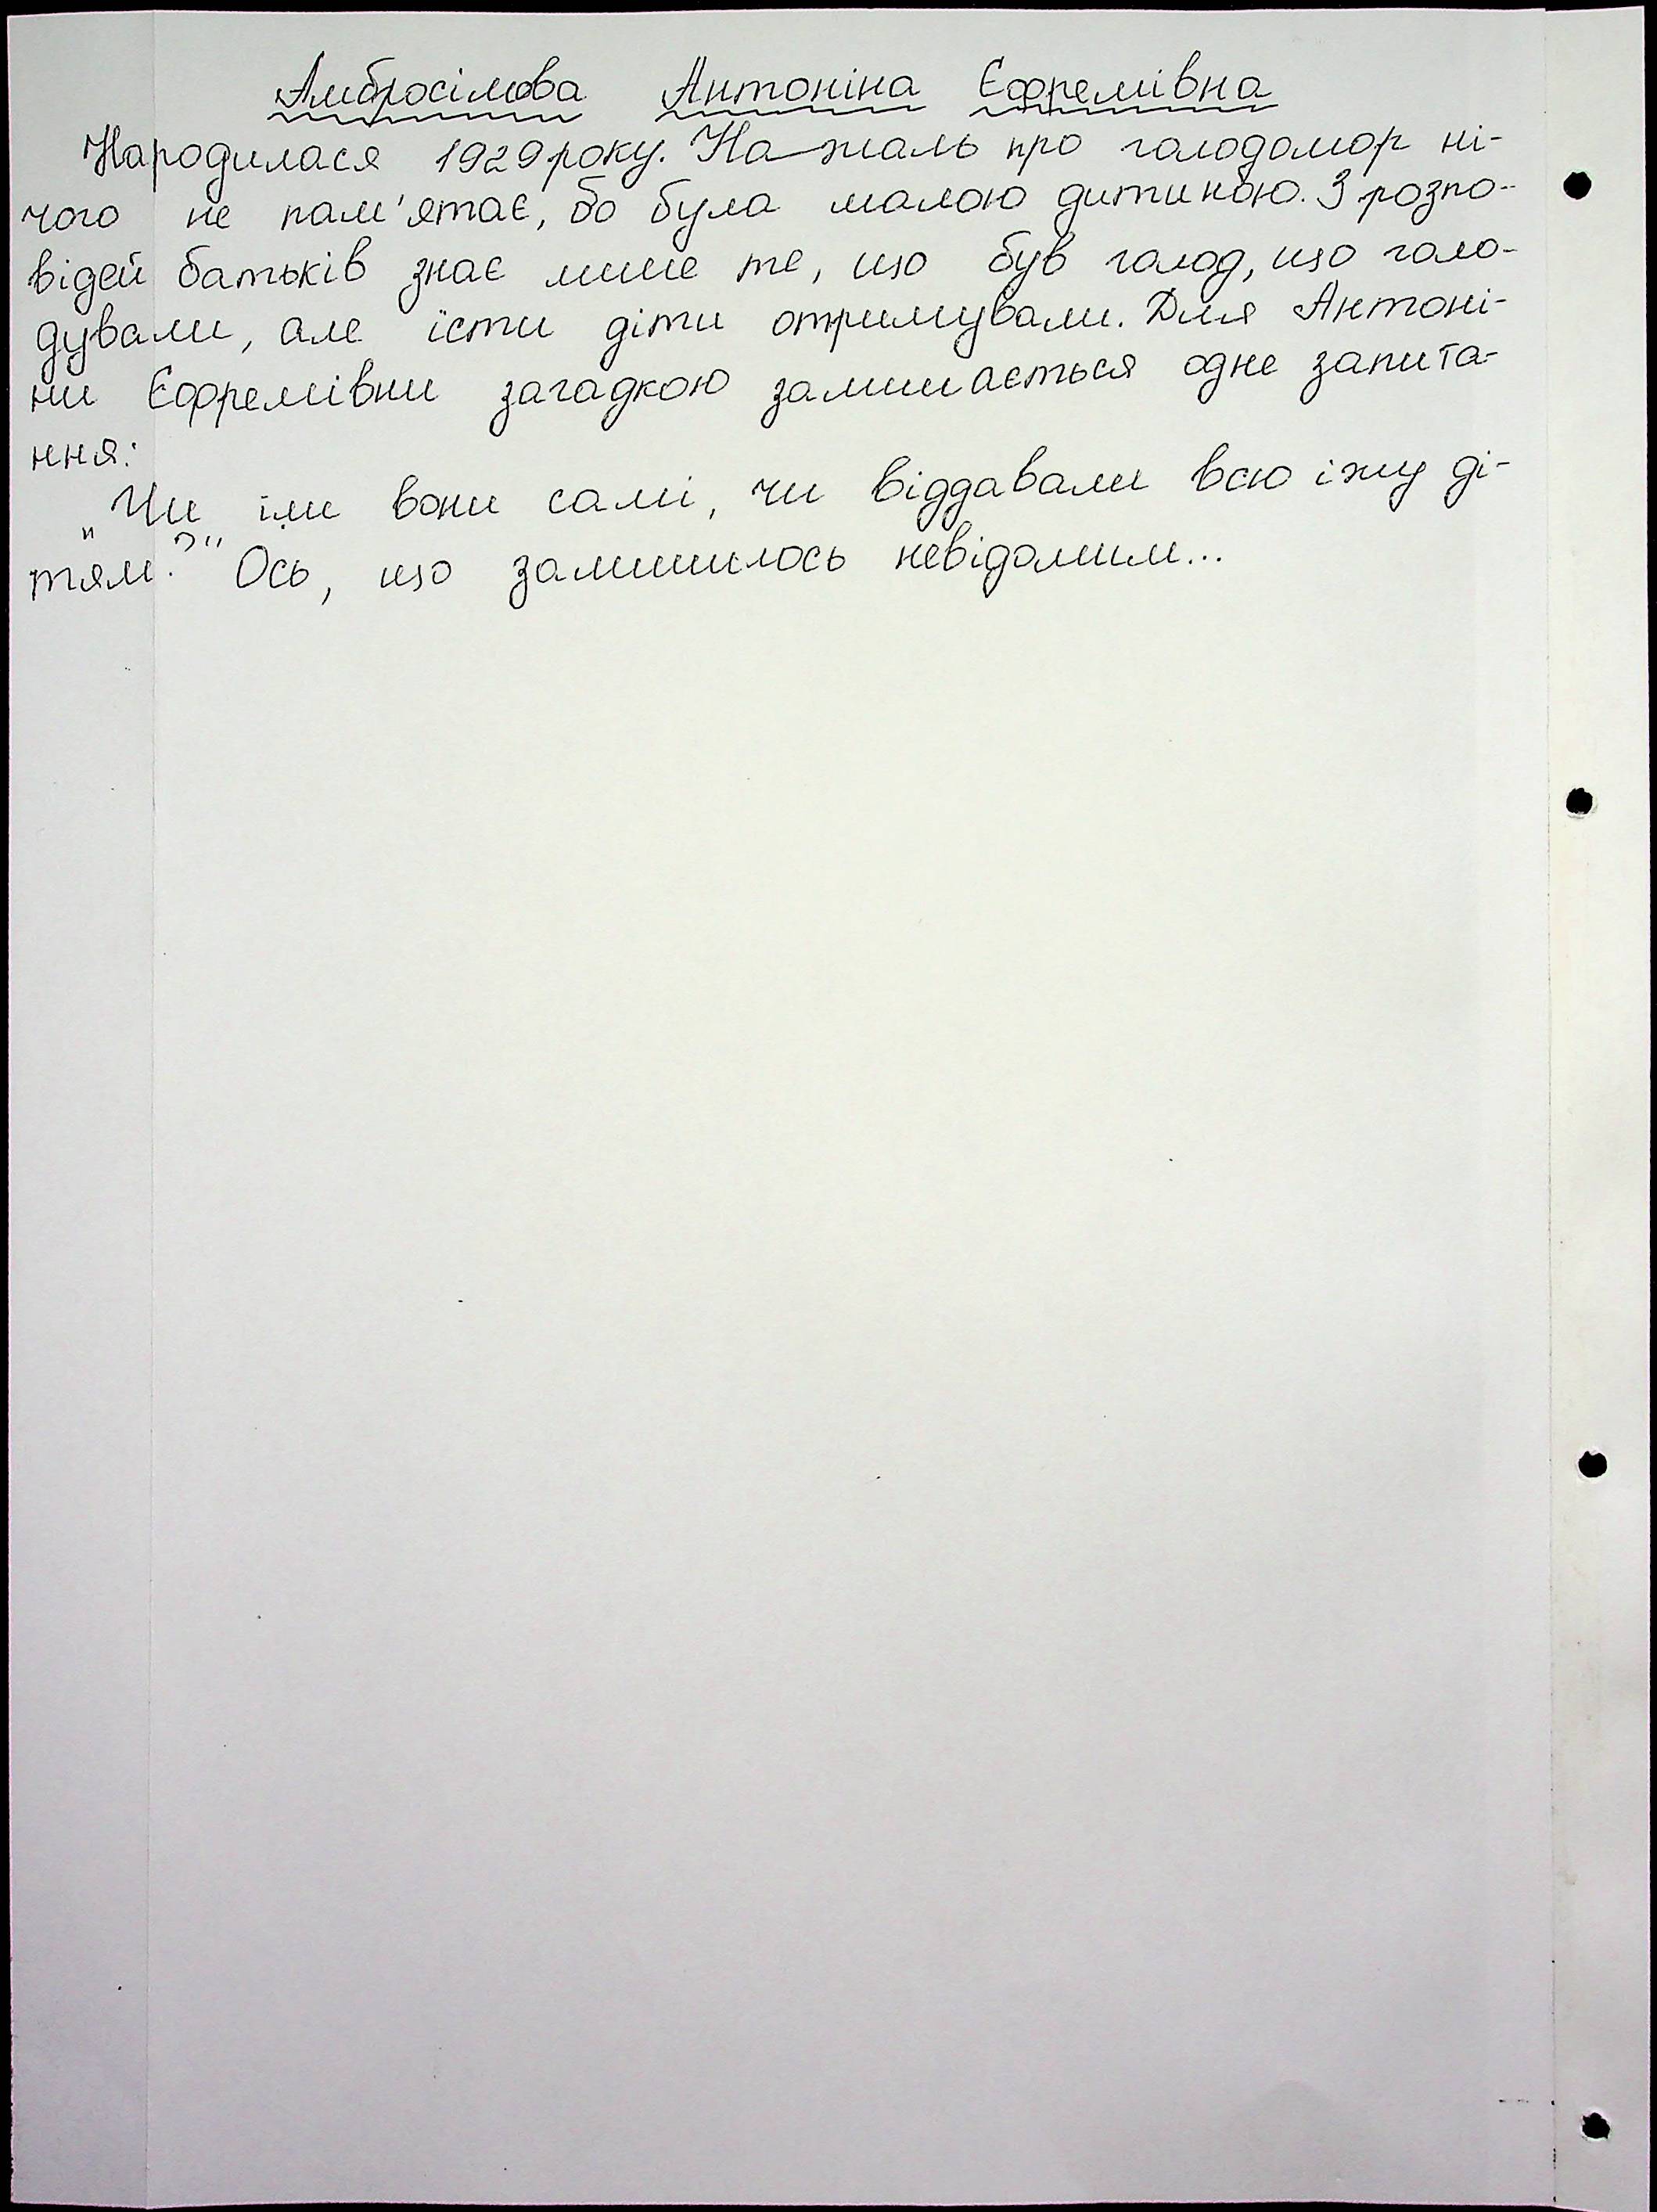 Амбросімова Антоніна Єфремівна
Народилася 1929 року. На жаль про голодомор ні-
чого не пам'ятає, бо була малою дитиною. З розпо-
відей батьків знає лише те, що був голод, що голо-
дували, але їсти діти отримували. Для Антоні-
ни Єфремівни загадкою залишається одне запита-
ння:
„Чи їли вони самі, чи віддавали всю їжу ді-
тям?" Ось, що залишилось невідомим...